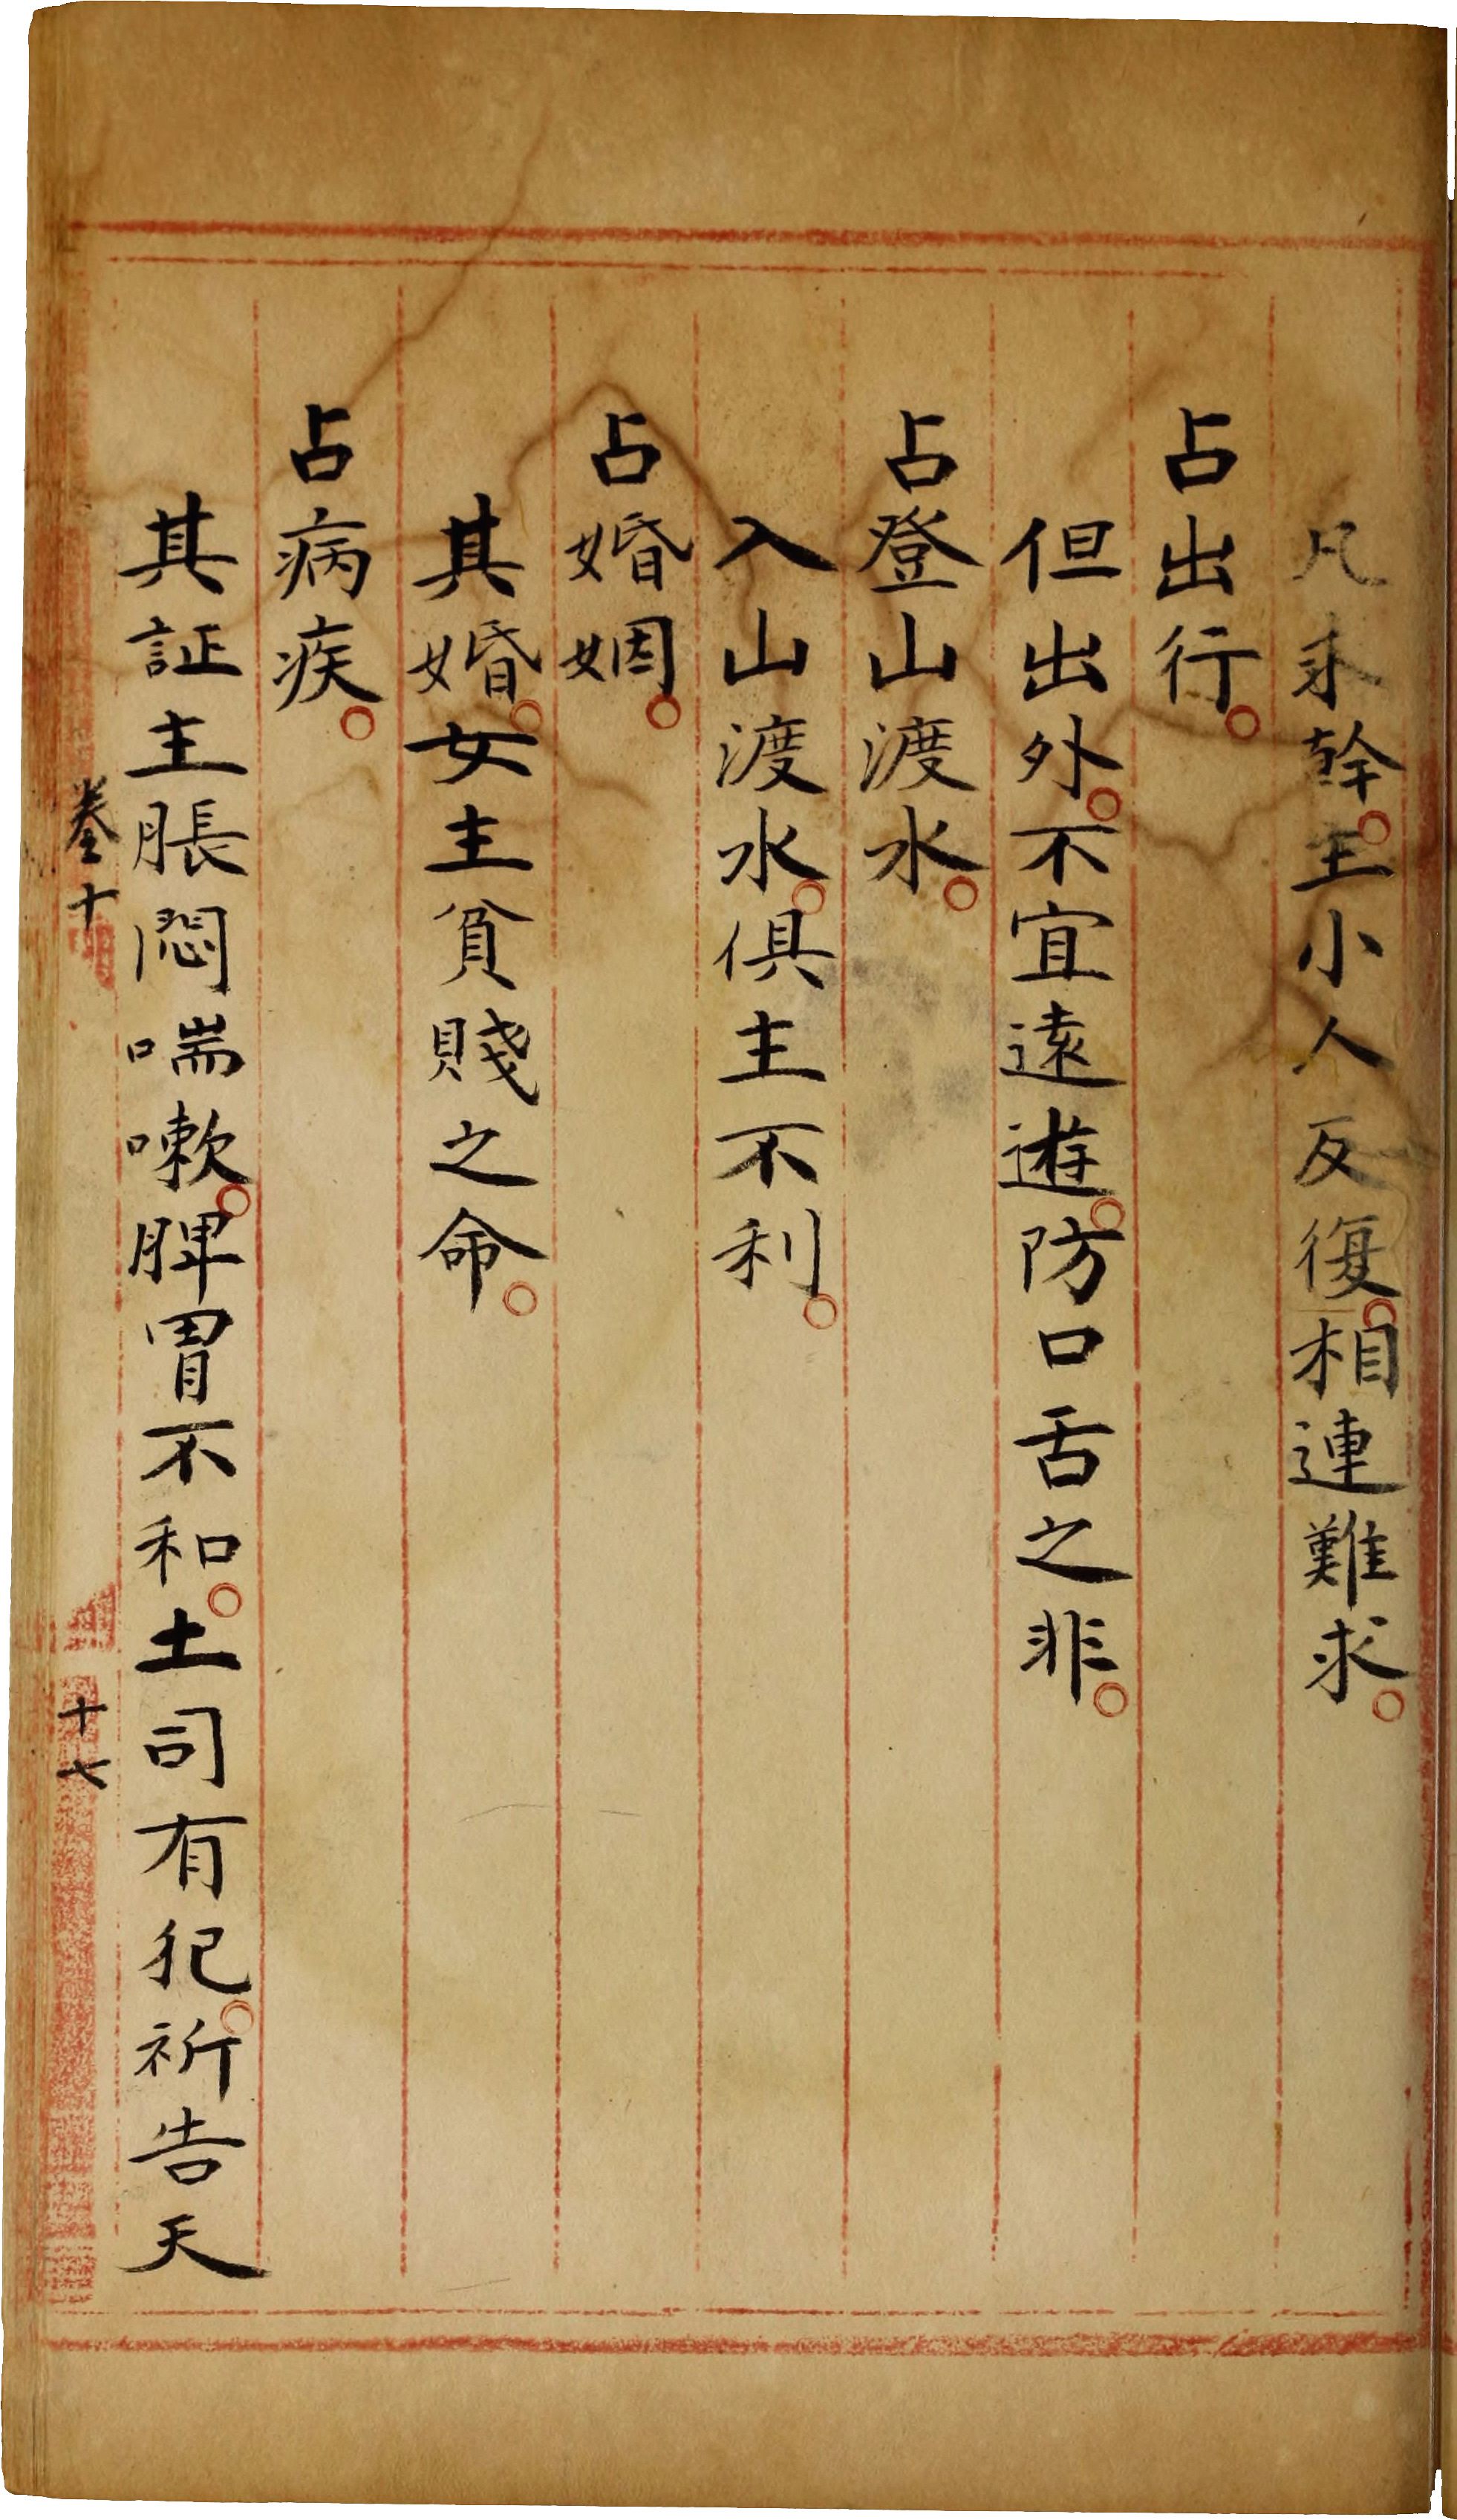 凡求幹。主小人反復。相連難求。
占出行。
但出外。不宜遠遊。防口舌之非。
占登山渡水。
入山渡水。俱主不利。
占婚姻。
其婚。女主貧賤之命。
占病疾。
其証主脹悶喘嗽。脾胃不和。土司有犯。祈告天
卷十
十七